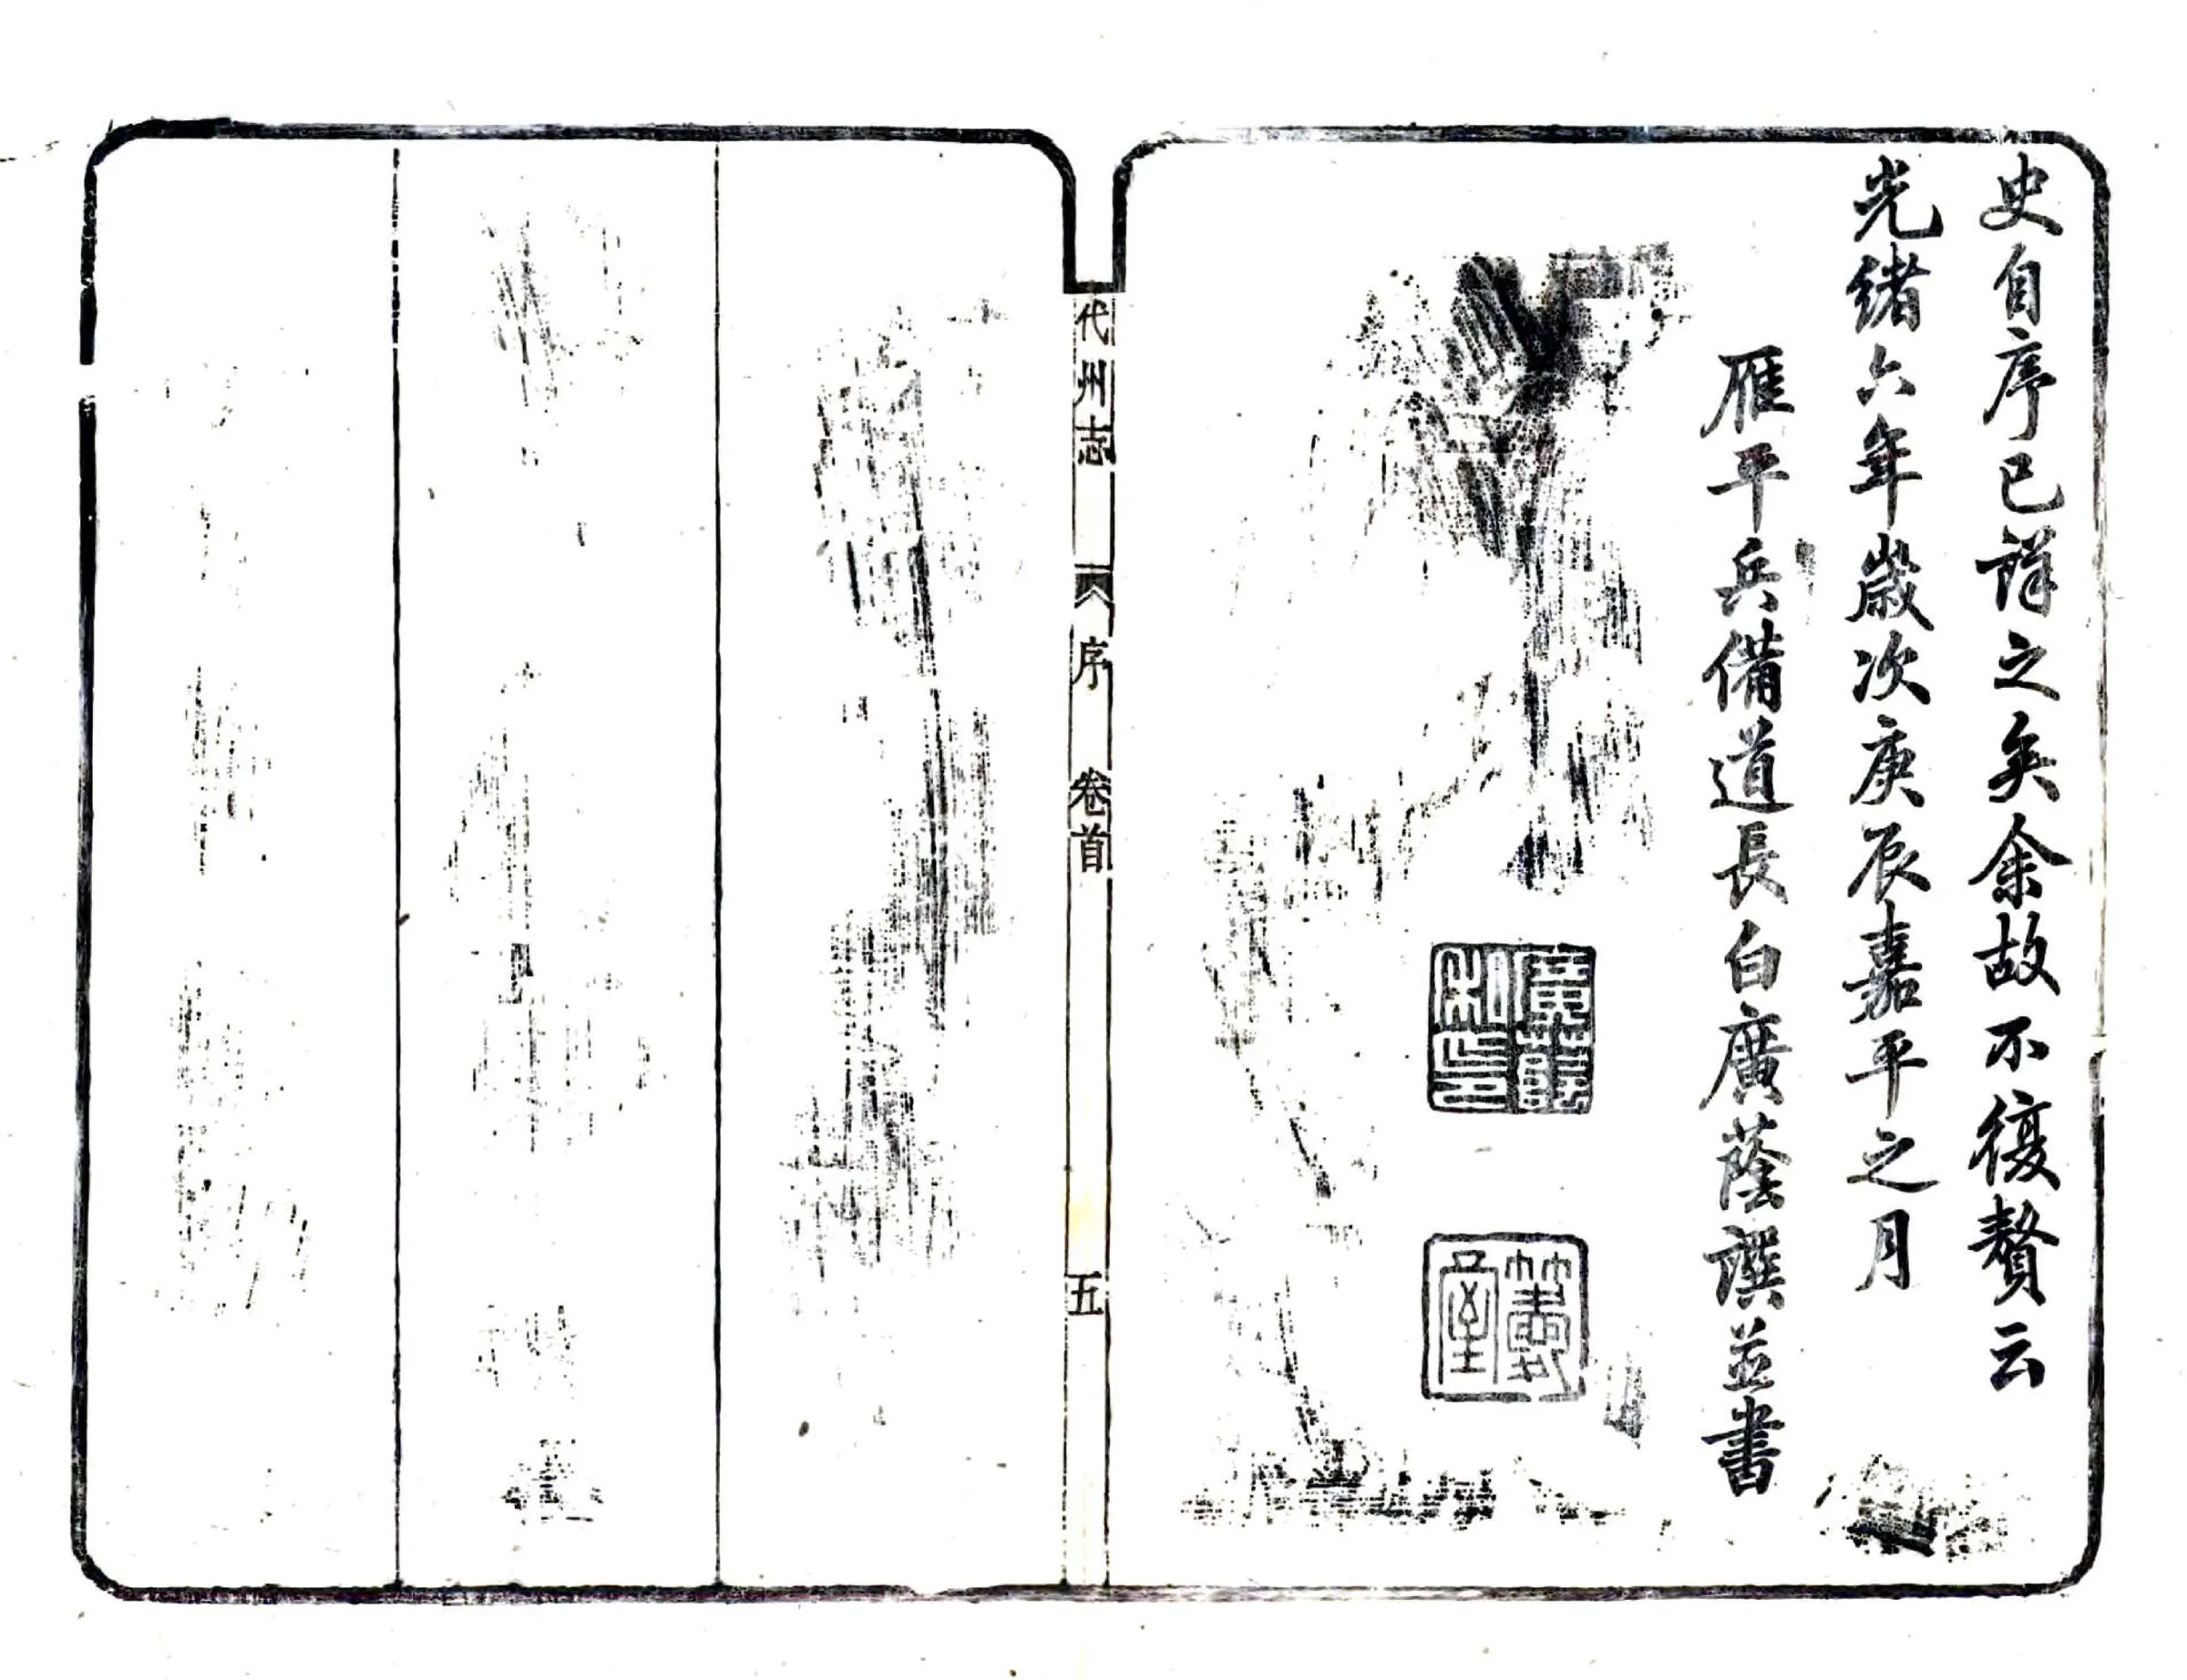 史自序已詳之矣余故不復贅云
光緒六年歲次庚辰嘉平之月
雁平兵備道長白廣蔭譔並書
廣蔭
私印
代州志 序 卷首 五